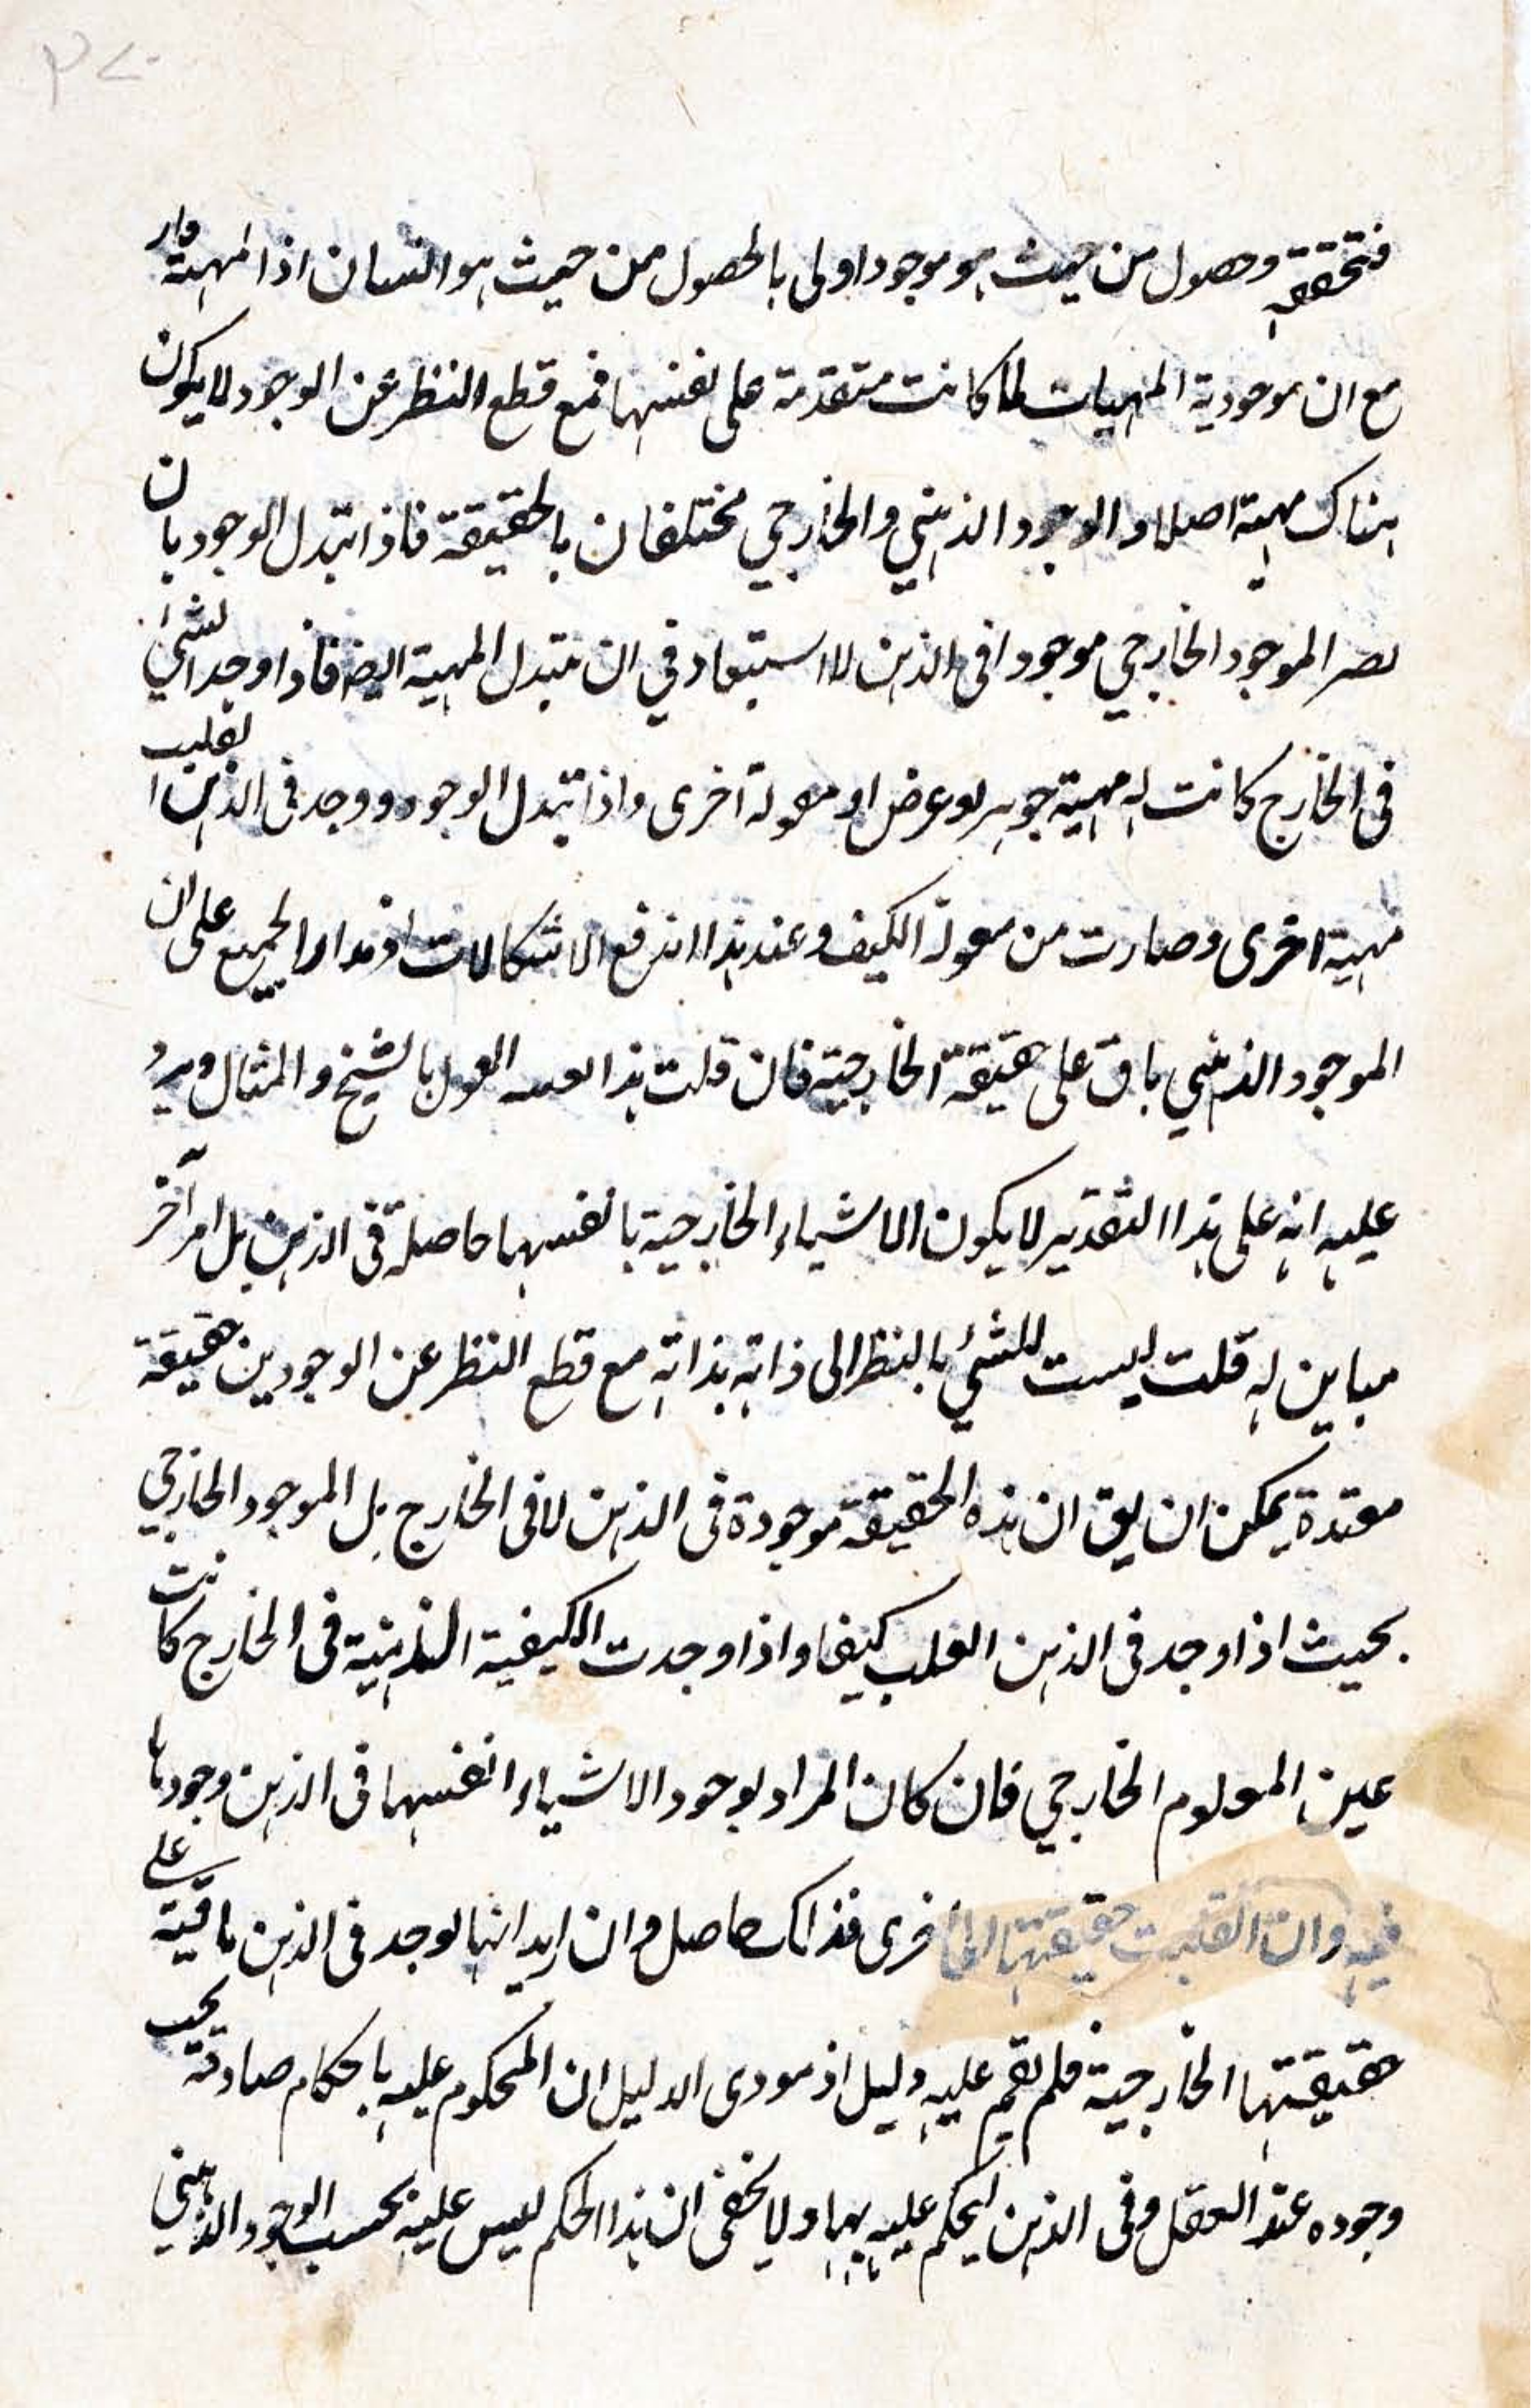 فتحققه وحصول من حيث هو موجود اولى بالحصول من حيث هو انسان اذا المهية وار
مع ان موجودية المهيات لما كانت متقدمة على نفسها فمع قطع النظر عن الوجود لا يكون
هناك مهية اصلا و الوجود الذهني والخارجي مختلفان بالحقيقة فاذا تبدل الوجود بان
يصير الموجود الخارجي موجودا في الذهن لا استبعاد في ان تتبدل المهية ايضا فاذا وجد الشئ
في الخارج كانت له مهية جوهر او عرض او مقولة اخرى واذا تبدل الوجود ووجد في الذهن انقلبت
مهية اخرى وصارت من مقولة الكيف وعند هذا اندفع الاشكالات اذ مدار الجميع على ان
الموجود الذهني باق على حقيقة الخارجية فان قلت هذا بعينه القول بالشبح والمثال ويرد
عليه انه على هذا التقدير لا يكون الاشياء الخارجية بانفسها حاصلة في الذهن بل امر آخر
مباين له قلت ليست للشئ بالنظر الى ذاته بذاته مع قطع النظر عن الوجودين حقيقة
معتدة يمكن ان يق ان هذه الحقيقة موجودة في الذهن لا في الخارج بل الموجود الخارجي
بحيث اذا وجد في الذهن انقلب كيفا واذا وجدت الكيفية الذهنية في الخارج كانت
عين المعلوم الخارجي فان كان المراد بوجود الاشياء انفسها في الذهن وجودها
فيه وان انقلبت حقيقتها الى اخرى فذاك حاصل وان اريد انها توجد في الذهن باقية على
حقيقتها الخارجية فلم يقم عليه دليل اذ مودى الدليل ان المحكوم عليه باحكام صادقة يجب
وجوده عند العقل وفى الذهن ليحكم عليه بها ولا يخفى ان هذا الحكم ليس عليه بحسب الوجود الذهني